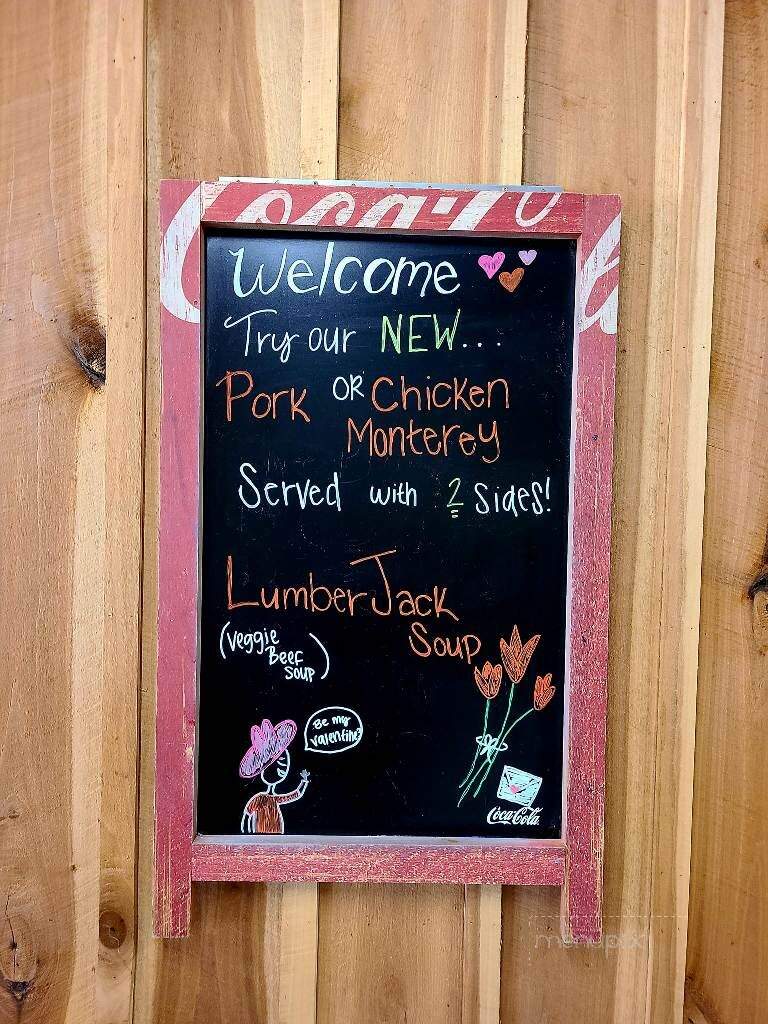 Coca-Cola
Welcome
Try our NEW...
Pork OR Chicken
Monterey
Served with 2 Sides!
LumberJack
Soup
(Veggie
Beef
Soup)
Be my
valentine?
Coca-Cola
menupix